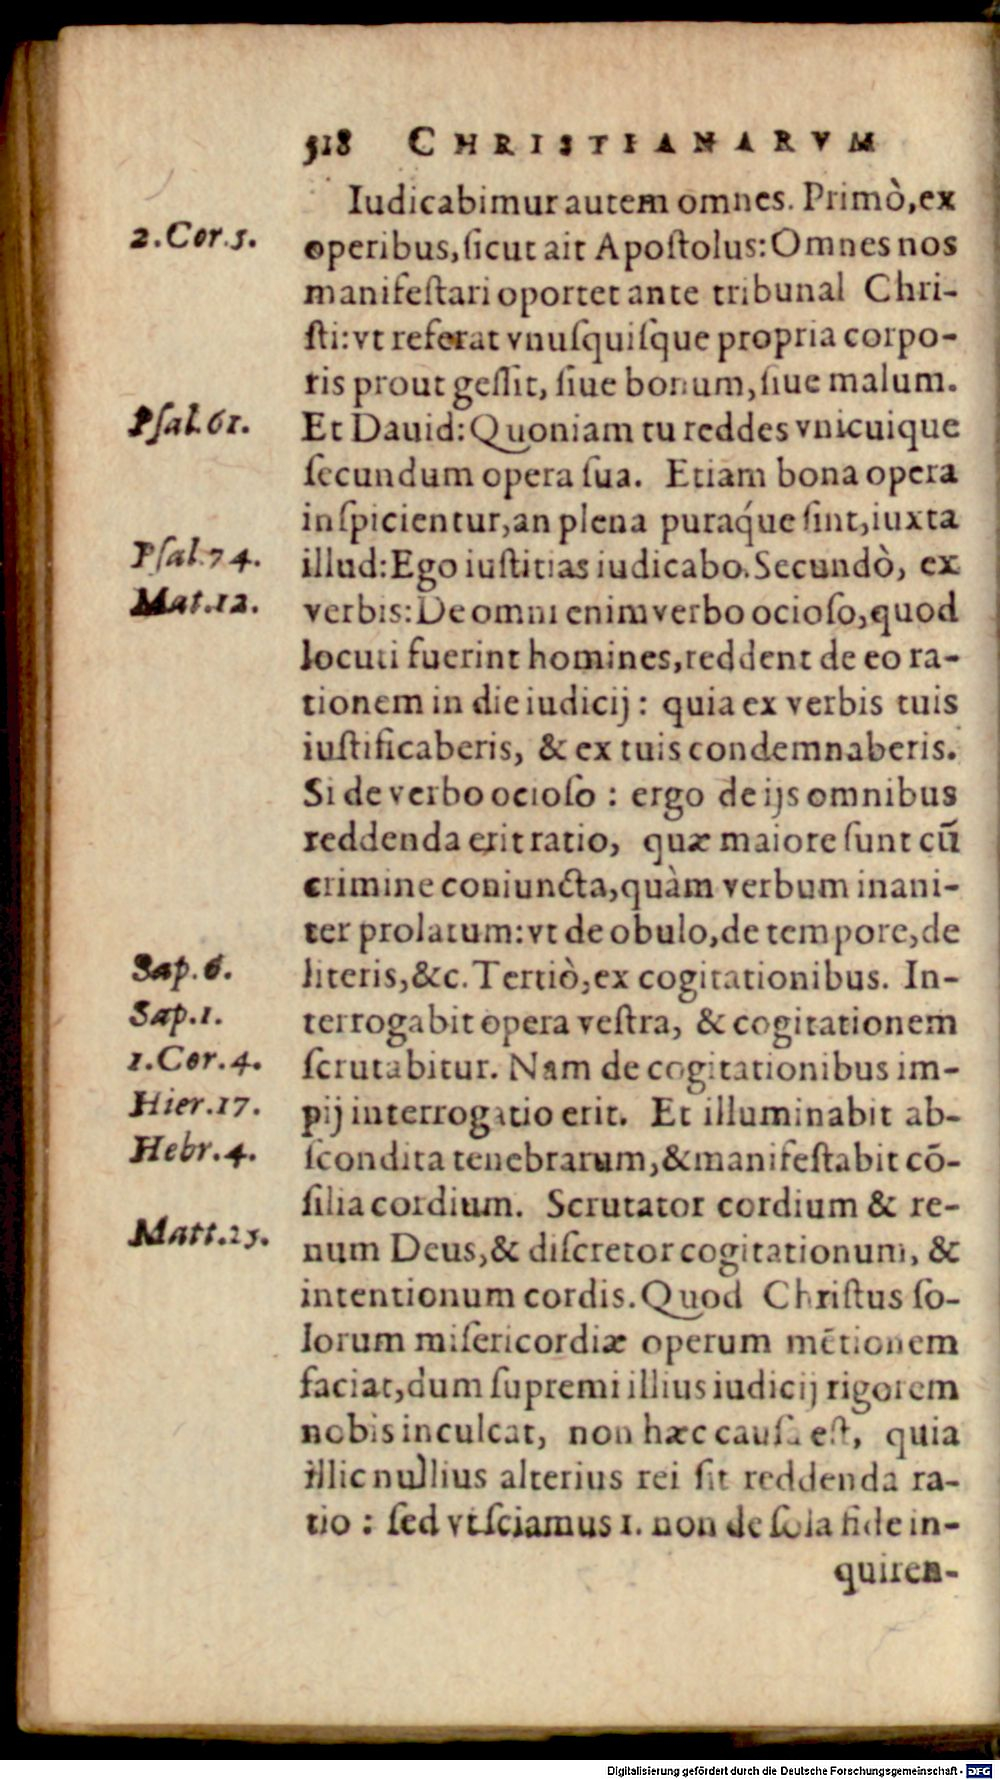 518 CHRISTIANARVM
Iudicabimur autem omnes. Primò, ex
2. Cor. 5.
operibus, ſicut ait Apoſtolus: Omnes nos
manifeſtari oportet ante tribunal Chri-
ſti: vt referat vnuſquiſque propria corpo-
ris prout geſſit, ſiue bonum, ſiue malum.
Pſal. 61.
Et Dauid: Quoniam tu reddes vnicuique
ſecundum opera ſua. Etiam bona opera
inſpicientur, an plena puraq́ue ſint, iuxta
Pſal. 74.
illud: Ego iuſtitias iudicabo. Secundò, ex
Mat. 12.
verbis: De omni enim verbo ocioſo, quod
locuti fuerint homines, reddent de eo ra-
tionem in die iudicij: quia ex verbis tuis
iuſtificaberis, & ex tuis condemnaberis.
Si de verbo ocioſo: ergo de ijs omnibus
reddenda erit ratio, quæ maiore ſunt cū
crimine coniuncta, quàm verbum inani-
ter prolatum: vt de obulo, de tempore, de
Sap. 6.
literis, &c. Tertiò, ex cogitationibus. In-
Sap. 1.
terrogabit opera veſtra, & cogitationem
1. Cor. 4.
ſcrutabitur. Nam de cogitationibus im-
Hier. 17.
pij interrogatio erit. Et illuminabit ab-
Hebr. 4.
ſcondita tenebrarum, & manifeſtabit cō-
ſilia cordium. Scrutator cordium & re-
Matt. 25.
num Deus, & diſcretor cogitationum, &
intentionum cordis. Quod Chriſtus ſo-
lorum miſericordiæ operum mētionem
faciat, dum ſupremi illius iudicij rigorem
nobis inculcat, non hæc cauſa eſt, quia
illic nullius alterius rei ſit reddenda ra-
tio: ſed vt ſciamus 1. non de ſola fide in-
quiren-
Digitalisierung gefördert durch die Deutsche Forschungsgemeinschaft - DFG